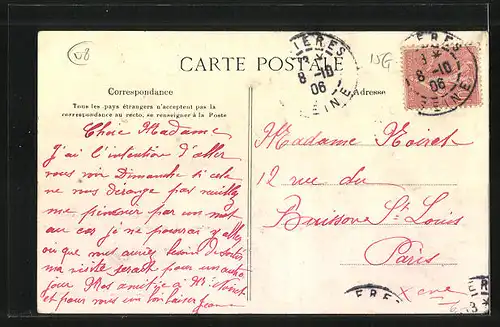 V8
CARTE POSTALE
15G
IÈRES
8-10
06
SEINE
8-10
06
INE
Correspondance
Adresse
Tous les pays étrangers n'acceptent pas la
correspondance au recto, se renseigner à la Poste
Chère Madame
J'ai l'intention d'aller
vous voir Dimanche si cela
ne vous dérange pas veuillez
me prévenir par un mot
au cas je ne pourrai y aller
où que vous auriez besoin de sortir
ma visite serait pour un autre
jour Mes amitiés à Mr Noiret
et pour vous un bon baiser Jeanne
Madame Noiret
12 rue du
Buisson St Louis
Paris
Xème